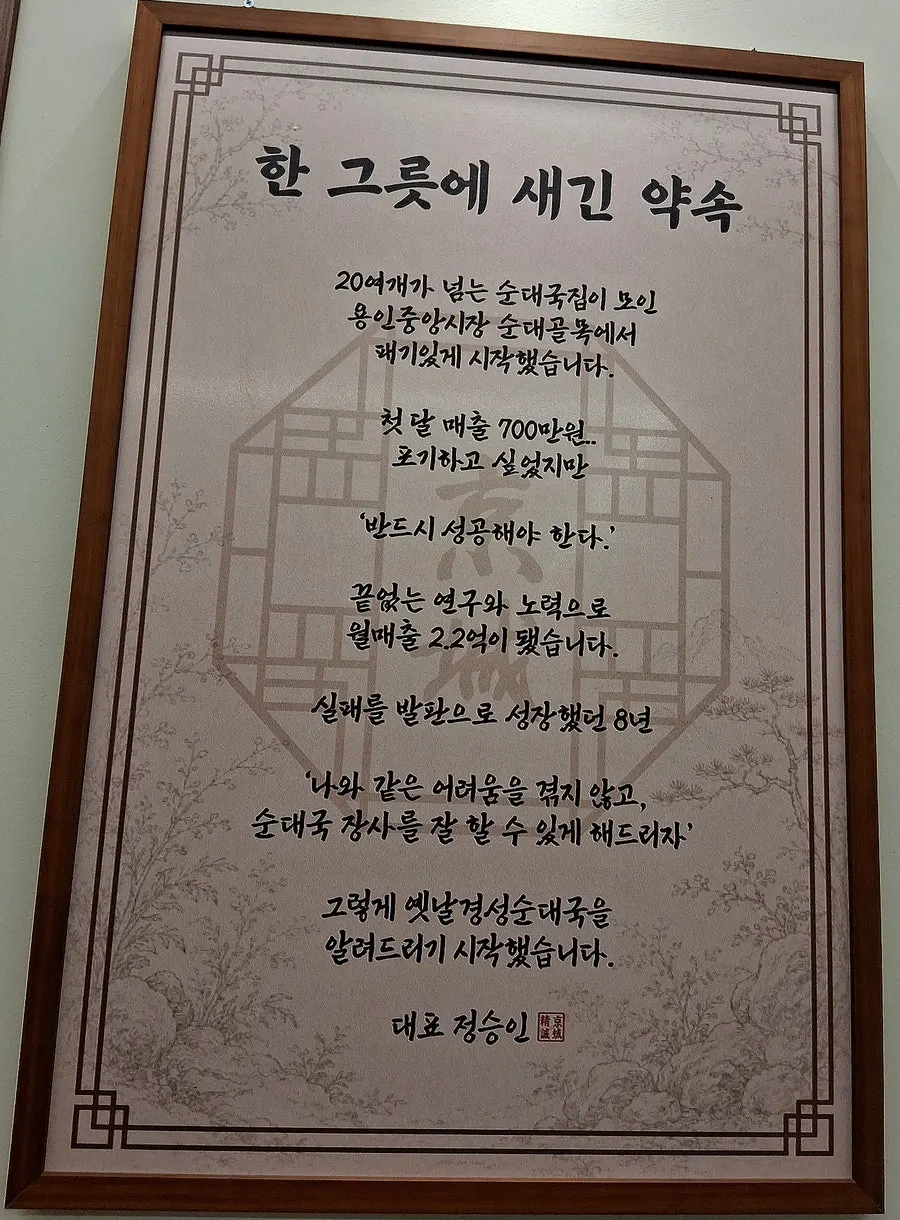 한 그릇에 새긴 약속
20여개가 넘는 순대국집이 모인
용인중앙시장 순대골목에서
패기있게 시작했습니다.
첫 달 매출 700만원..
포기하고 싶었지만
'반드시 성공해야 한다.'
끝없는 연구와 노력으로
월매출 2.2억이 됐습니다.
실패를 발판으로 성장했던 8년
'나와 같은 어려움을 겪지 않고,
순대국 장사를 잘 할 수 있게 해드리자'
그렇게 옛날경성순대국을
알려드리기 시작했습니다.
대표 정승인
京城